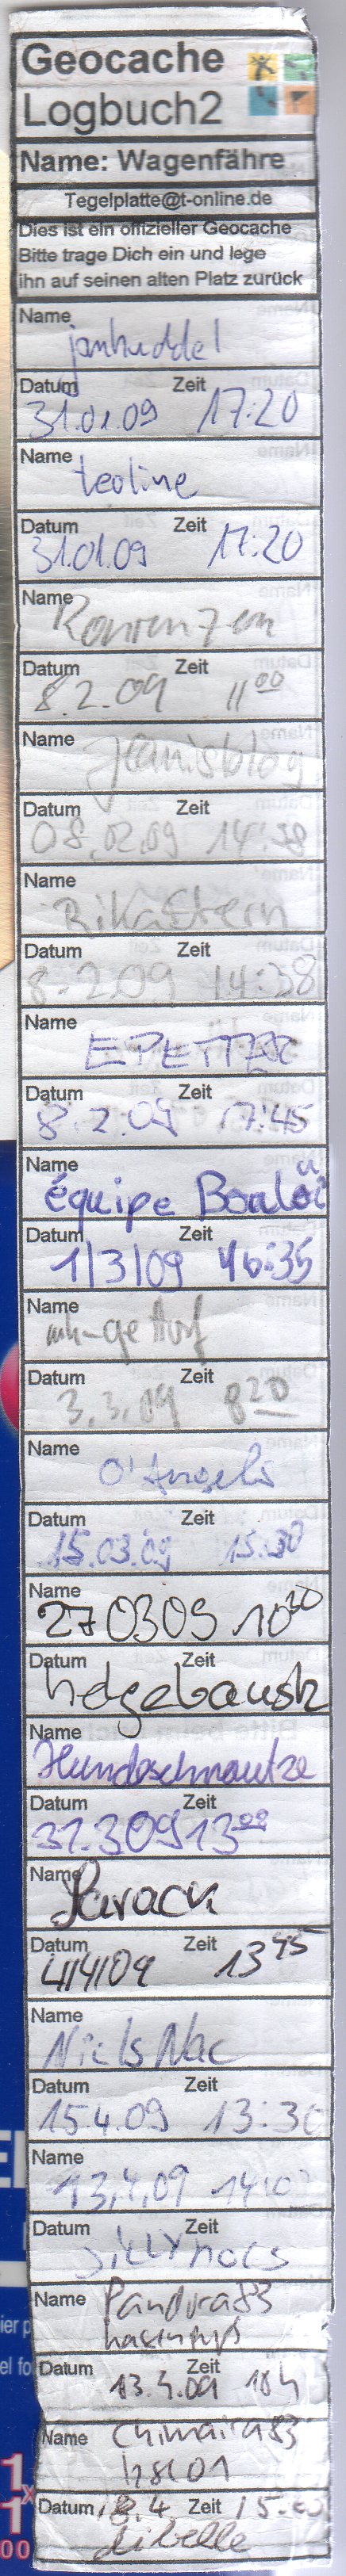 Geocache
Logbuch2
Name: Wagenfähre
Tegelplatte@t-online.de
Dies ist ein offizieller Geocache
Bitte trage Dich ein und lege
ihn auf seinen alten Platz zurück
Name
janhuddel
Datum Zeit
31.01.09 17:20
Name
teoline
Datum Zeit
31.01.09 17:20
Name
Datum Zeit
8.2.09 11 00
Name
Datum Zeit
08.02.09 14:38
Name
RikaStern
Datum Zeit
8.2.09 14:38
Name
Datum Zeit
8.2.09 17:45
Name
équipe
Datum Zeit
1/3/09 16:35
Name
Datum Zeit
3.3.09 8 20
Name
O'Angels
Datum Zeit
15.03.09 15:30
Name
270309 10 30
Datum Zeit
helgebausk
Name
Hundeschnautze
Datum Zeit
31.309 13 00
Name
Datum Zeit
4/4/09 13 45
Name
Niels Nac
Datum Zeit
15.4.09 13:30
Name
13.4.09
Datum Zeit
Name Pandora83
Datum Zeit
13.4.09 18h
Name Chimaira83
Datum Zeit
Libelle
1
x
1
00